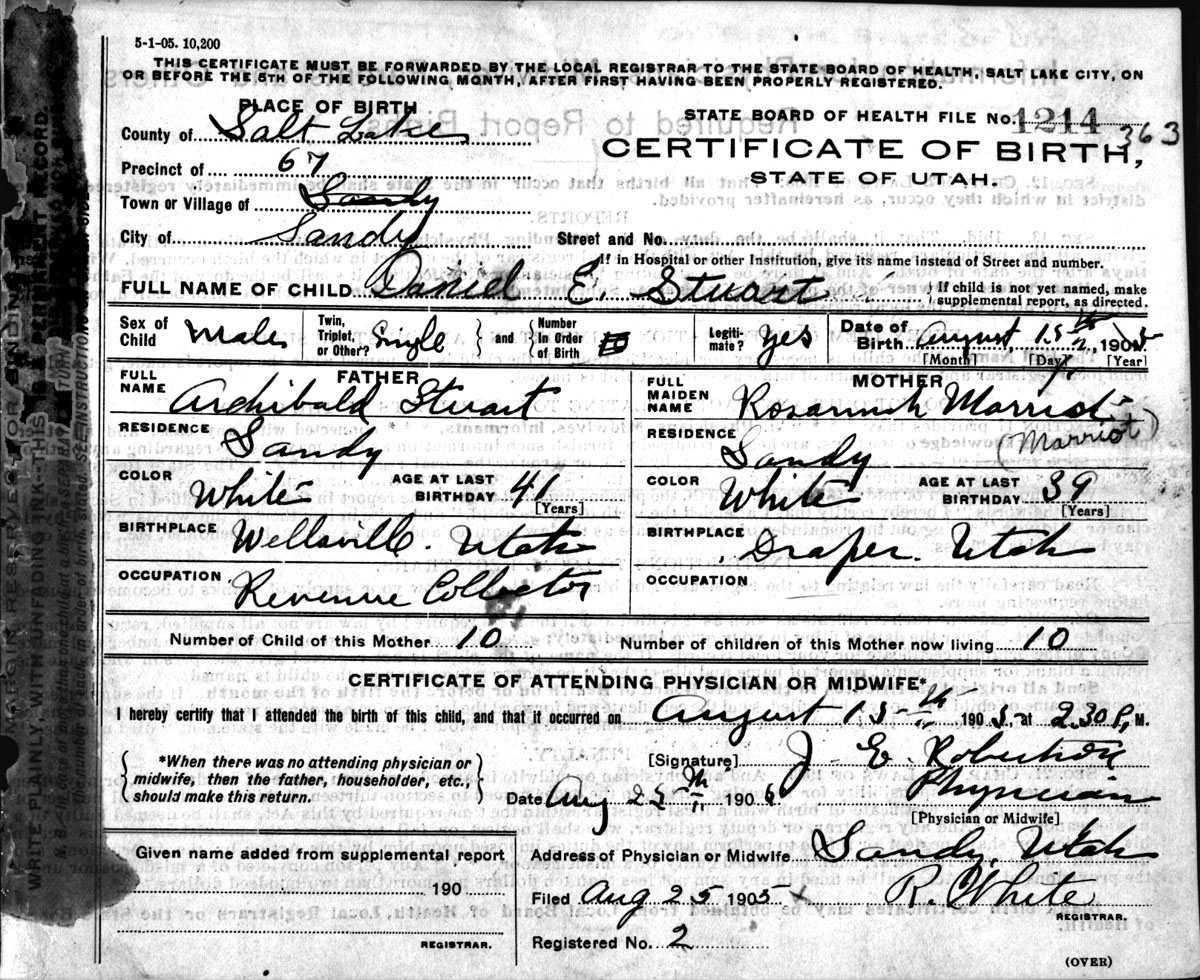 5-1-05. 10,200
THIS CERTIFICATE MUST BE FORWARDED BY THE LOCAL REGISTRAR TO THE STATE BOARD OF HEALTH, SALT LAKE CITY, ON
OR BEFORE THE 5TH OF THE FOLLOWING MONTH, AFTER FIRST HAVING BEEN PROPERLY REGISTERED.
PLACE OF BIRTH
County of Salt Lake
Precinct of 67
Town or Village of Sandy
City of Sandy
STATE BOARD OF HEALTH FILE No. 1214 363
CERTIFICATE OF BIRTH,
STATE OF UTAH.
Street and No.
If in Hospital or other Institution, give its name instead of Street and number.
FULL NAME OF CHILD Daniel E. Stuart
If child is not yet named, make
supplemental report, as directed.
Sex of Child Male
Twin, Triplet, or Other? Single and Number In Order of Birth
Legitimate? Yes
Date of Birth August 15th 1905
[Month] [Day] [Year]
FATHER
FULL NAME Archibald Stuart
RESIDENCE Sandy
COLOR White AGE AT LAST BIRTHDAY 41 [Years]
BIRTHPLACE Wellsville. Utah
OCCUPATION Revenue Collector
MOTHER
FULL MAIDEN NAME Rosannah Marriot
(Marriot)
RESIDENCE Sandy
COLOR White AGE AT LAST BIRTHDAY 39 [Years]
BIRTHPLACE Draper. Utah
OCCUPATION
Number of Child of this Mother 10 Number of children of this Mother now living 10
CERTIFICATE OF ATTENDING PHYSICIAN OR MIDWIFE*
I hereby certify that I attended the birth of this child, and that it occurred on August 15th 1905, at 2.30 P, M.
*When there was no attending physician or
midwife, then the father, householder, etc.,
should make this return.
[Signature] J. E. Robertson
Physician
Date Aug 25th 190
[Physician or Midwife]
Address of Physician or Midwife Sandy, Utah
Filed Aug 25 1905 R. White
REGISTRAR.
Registered No. 2
Given name added from supplemental report
190
REGISTRAR.
(OVER)
MARGIN RESERVED FOR BINDING
WRITE PLAINLY, WITH UNFADING INK--THIS IS A PERMANENT RECORD.